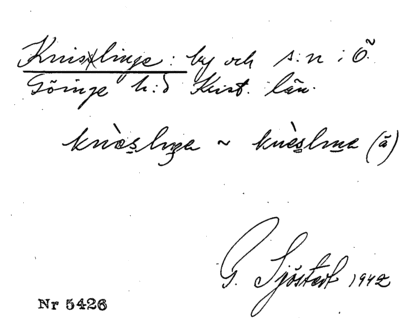 Knislinge: by och s:n i Ö.
Göinge h:d Krist. län.
knìeslinga ~ knìeslina (ā)
G. Sjöstedt 1942
Nr 5426